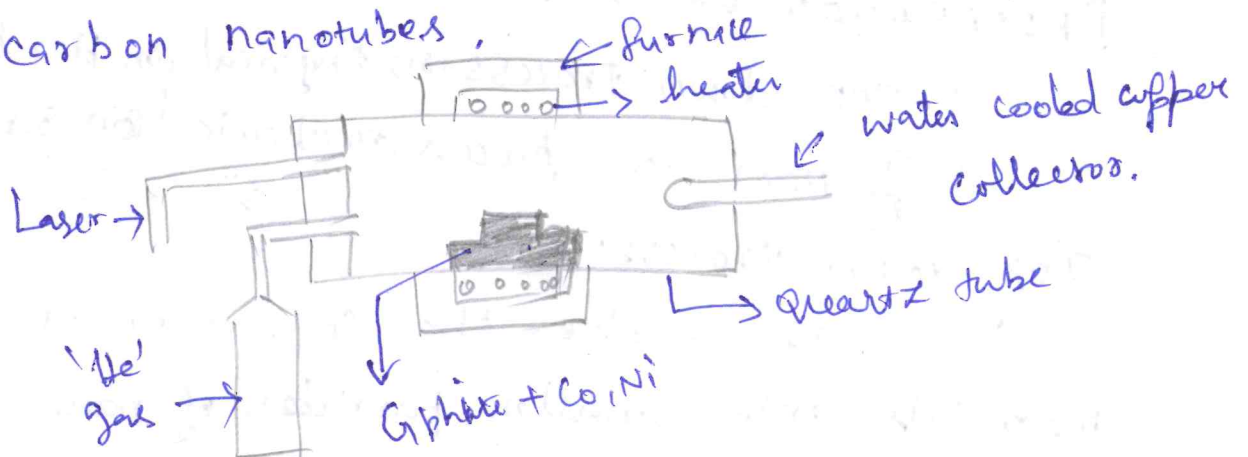 carbon nanotubes.
furnace
heater
water cooled copper
collector.
Laser
quartz tube
'He'
gas
Gphite + Co, Ni